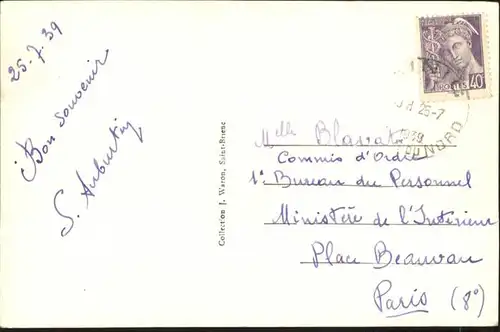 25.7.39
Bon souvenir
S. Aubertin
Collection J. Waron, Saint-Brieuc
40
25-7
1939
DU NORD
Melle
Commis d'Ordre
1er Bureau du Personnel
Ministère de l'Intérieur
Place Beauvau
Paris (8e)